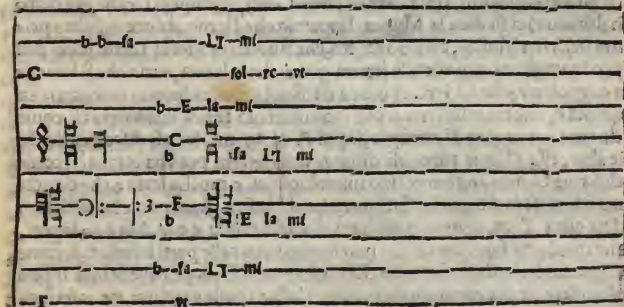 b b fa LI mi
G sol re vt
b E la mi
C
b fa LI mi
3 F
b E la mi
b fa LI mi
Γ vt